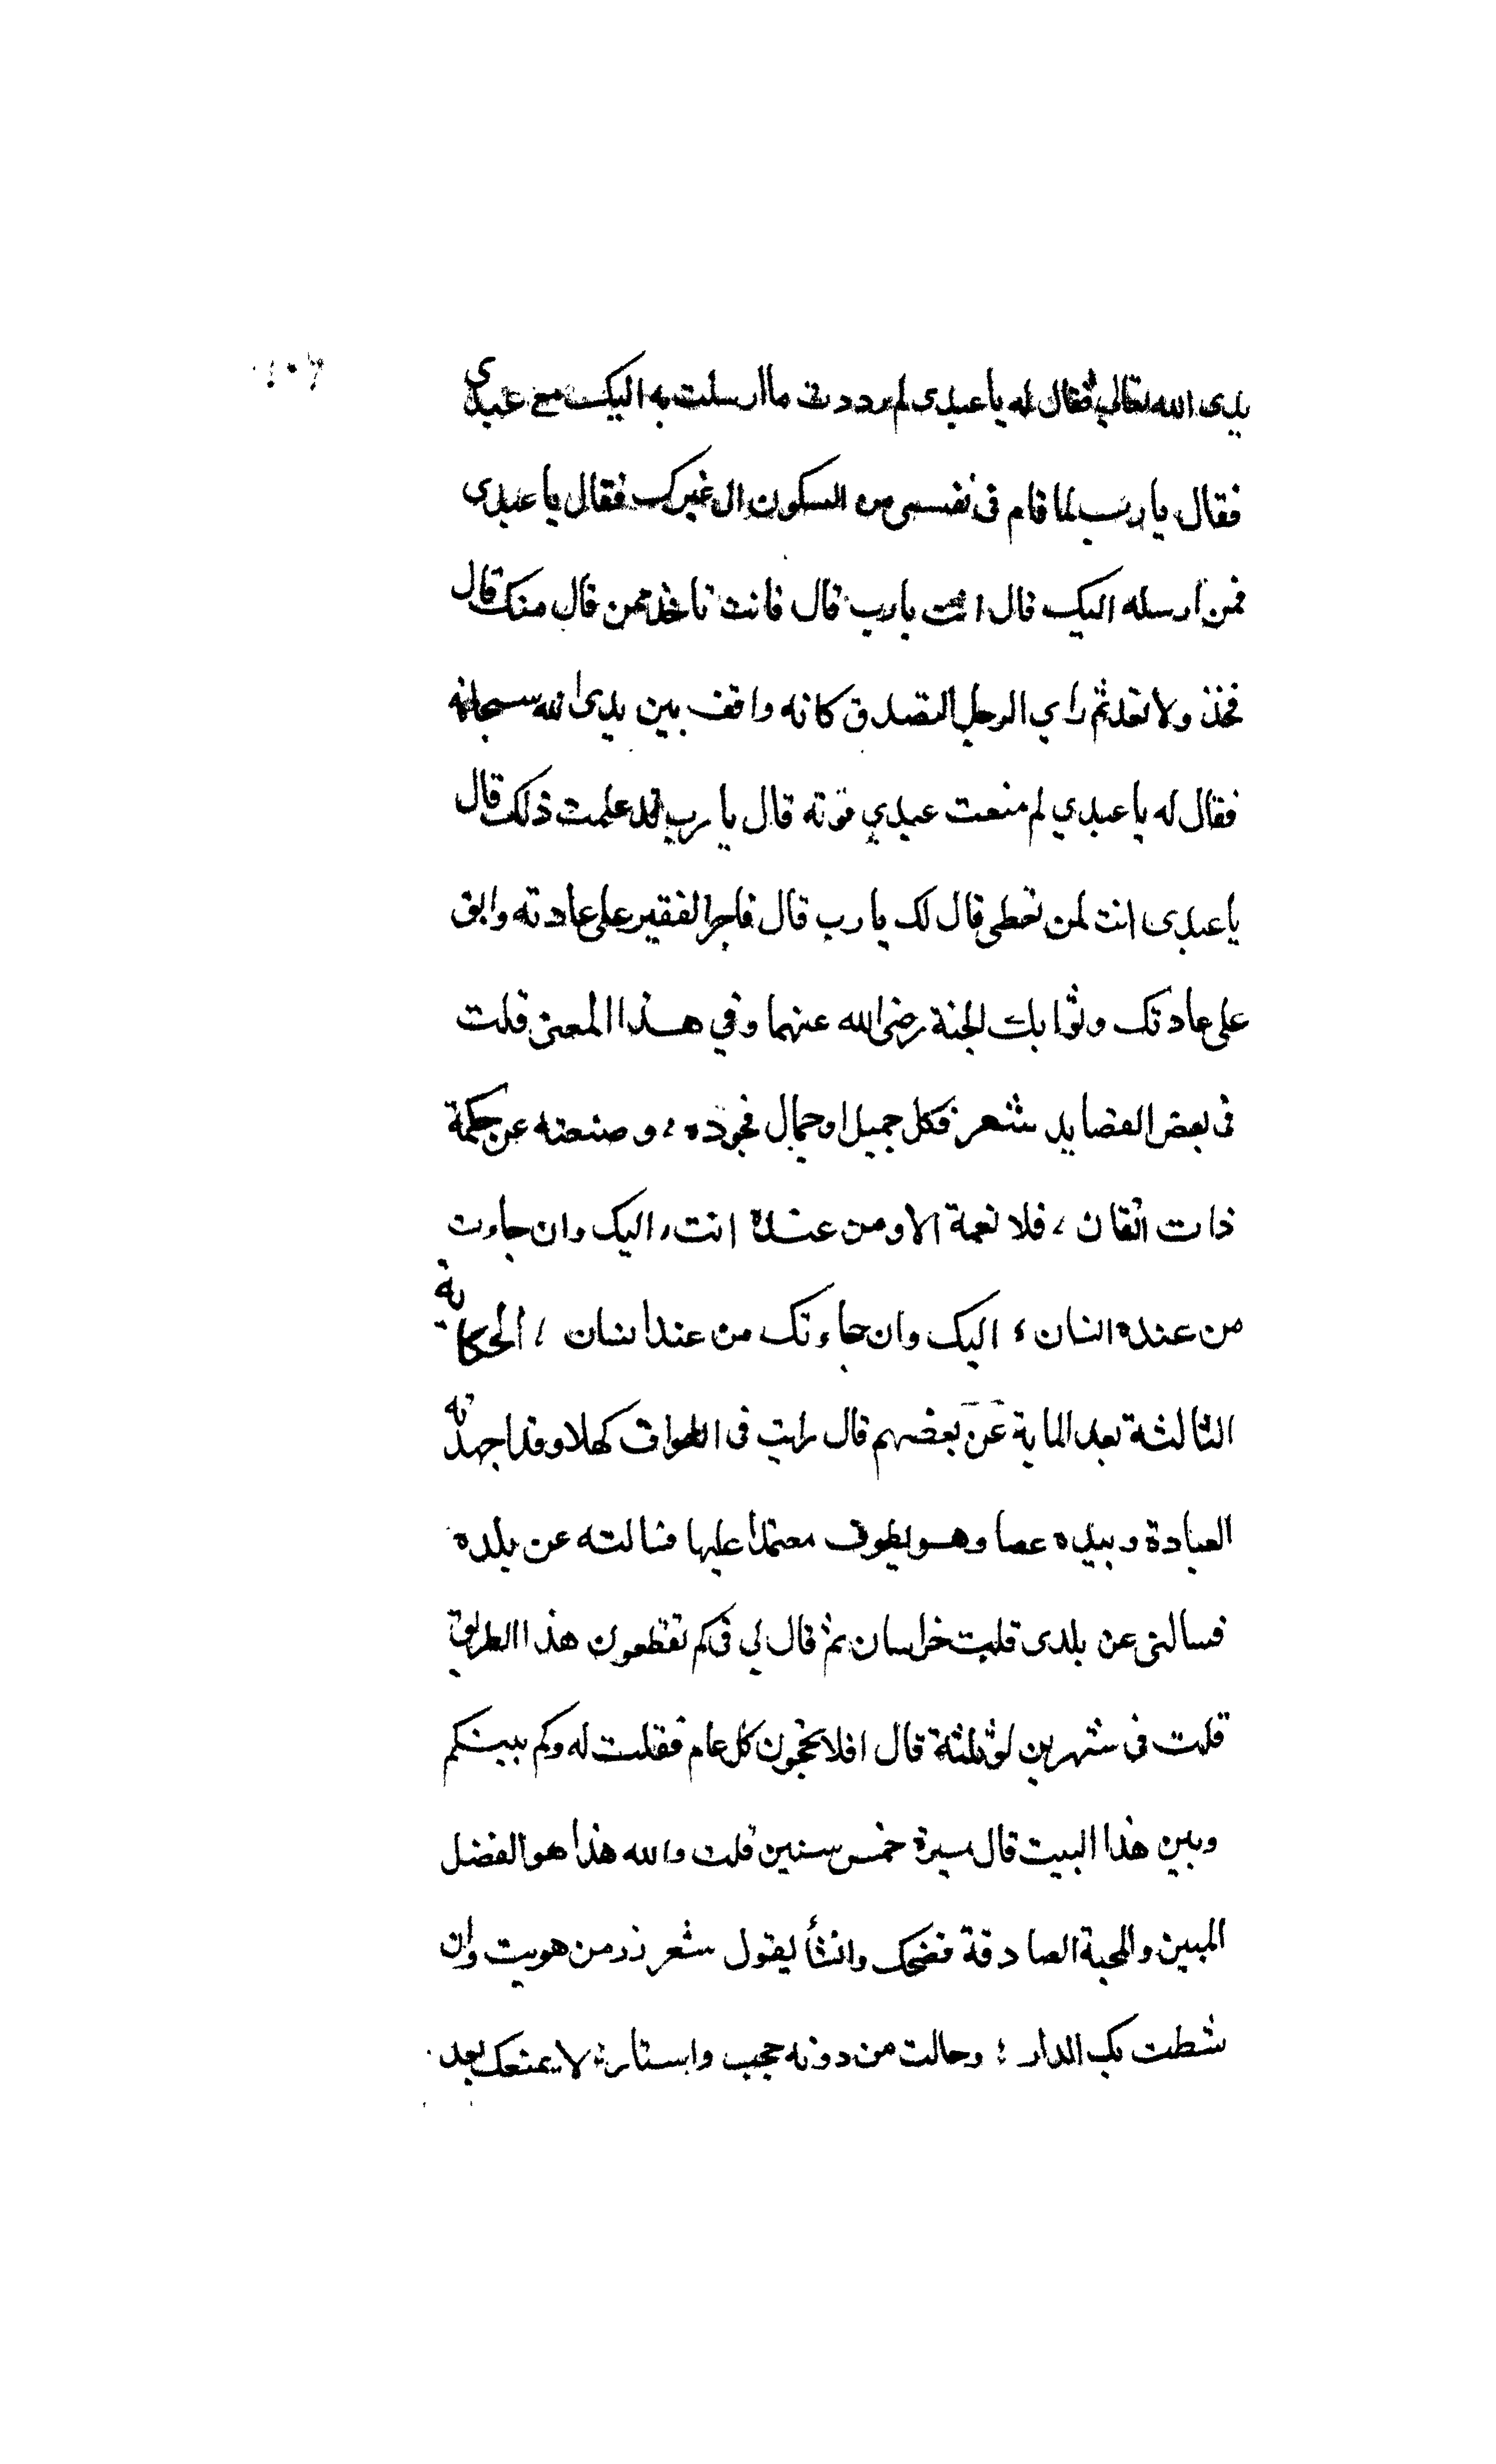 يدى الله تعالي فقال له يا عبدى لم رددت ما ارسلت به اليك مع عبدي
فقال يا رب لما قام فى نفسى من السكون الى غيرك فقال يا عبدى
فمن ارسله اليك قال انت يا رب قال فانت تاخذ ممن قال منك قال
فخذ ولا تعد ثم راي الرجل المتصدق كانه واقف بين يدى الله سبحانه
فقال له يا عبدي لم منعت عبدي قوته قال يا رب قد علمت ذلك قال
يا عبدى انت لمن تعطى قال لك يا رب قال فاجر الفقير على عادته وابق
على عادتك وثوابك الجنة رضى الله عنهما وفي هذا المعنى قلت
فى بعض القصايد شعر فكل جميل او جمال فجوده ، وصنعته عن حكمة
ذات اتقان ، فلا نعمة الا ومن عنده انت ، اليك وان جاءت
من عنده انسان ، اليك وان جاءتك من عند انسان ، الحكاية
الثالثة بعد الماية عن بعضهم قال رايت فى الطواف كهلا وقد اجهدته
العبادة وبيده عصا وهو يطوف معتمدا عليها فسالته عن بلده
فسالنى عن بلدى قلت خراسان ثم قال لي فى كم تقطعون هذا الطريق
قلت فى شهرين او ثلثة قال افلا تحجون كل عام فقلت له وكم بينكم
وبين هذا البيت قال مسيرة خمس سنين قلت والله هذا هو الفضل
المبين والمحبة الصادقة فضحك وانشأ يقول شعر زر من هويت وان
شطت بك الدار ؛ وحالت من دونه حجب واستار ، لا يمنعك بعد